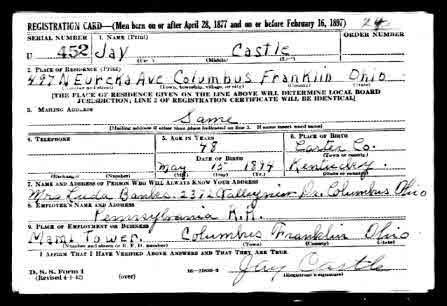 REGISTRATION CARD—(Men born on or after April 28, 1877 and on or before February 16, 1897) 24
SERIAL NUMBER 1. NAME (Print) ORDER NUMBER
U 452 Jay Castle
(First) (Middle) (Last)
2. PLACE OF RESIDENCE (Print)
497 N Eureka Ave Columbus Franklin Ohio
(Number and street) (Town, township, village, or city) (County) (State)
[THE PLACE OF RESIDENCE GIVEN ON THE LINE ABOVE WILL DETERMINE LOCAL BOARD
JURISDICTION; LINE 2 OF REGISTRATION CERTIFICATE WILL BE IDENTICAL]
3. MAILING ADDRESS
Same
[Mailing address if other than place indicated on line 2. If same insert word same]
4. TELEPHONE 5. AGE IN YEARS 6. PLACE OF BIRTH
48 Carter Co.
DATE OF BIRTH (Town or county)
May 15 Kentucky
(Exchange) (Number) (Mo.) (Day) (Yr.) (State or country)
7. NAME AND ADDRESS OF PERSON WHO WILL ALWAYS KNOW YOUR ADDRESS
Mrs Banks. 2372 Dr. Columbus Ohio
8. EMPLOYER'S NAME AND ADDRESS
Pennsylvania R.R.
9. PLACE OF EMPLOYMENT OR BUSINESS
Tower. Columbus Franklin Ohio
(Number and street or R. F. D. number) (Town) (County) (State)
I AFFIRM THAT I HAVE VERIFIED ABOVE ANSWERS AND THAT THEY ARE TRUE.
D. S. S. Form 1
(Revised 4-1-42) (over) Jay Castle
(Registrant's signature)